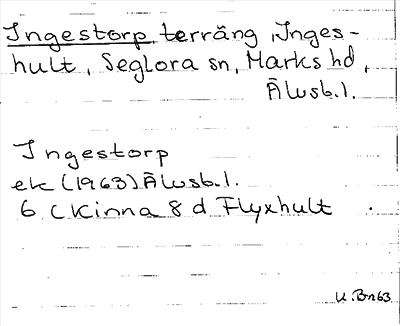 Ingestorp terräng, Inges-
hult, Seglora sn, Marks hd,
Älvsb.l.
Ingestorp
ek (1963) Älvsb.l.
6 C Kinna 8 d Flyxhult
U.Bn63